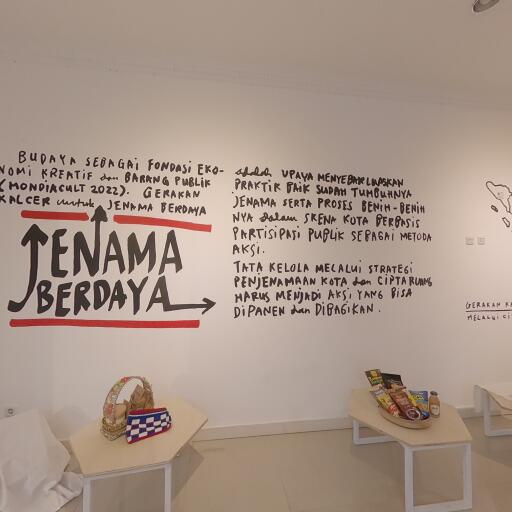 BUDAYA SEBAGAI FONDASI EKO-
NOMI KREATIF dan BARANG PUBLIK
(MONDIACULT 2022). GERAKAN
KALCER untuk JENAMA BERDAYA
JENAMA
BERDAYA
adalah UPAYA MENYEBARLUASKAN
PRAKTIK BAIK SUDAH TUMBUHNYA
JENAMA SERTA PROSES BENIH-BENIH
NYA dalam SKENA KOTA BERBASIS
PARTISIPASI PUBLIK SEBAGAI METODA
AKSI.
TATA KELOLA MELALUI STRATEGI
PENJENAMAAN KOTA dan CIPTA RUANG
HARUS MENJADI AKSI YANG BISA
DIPANEN dan DIBAGIKAN.
GERAKAN
MELALUI